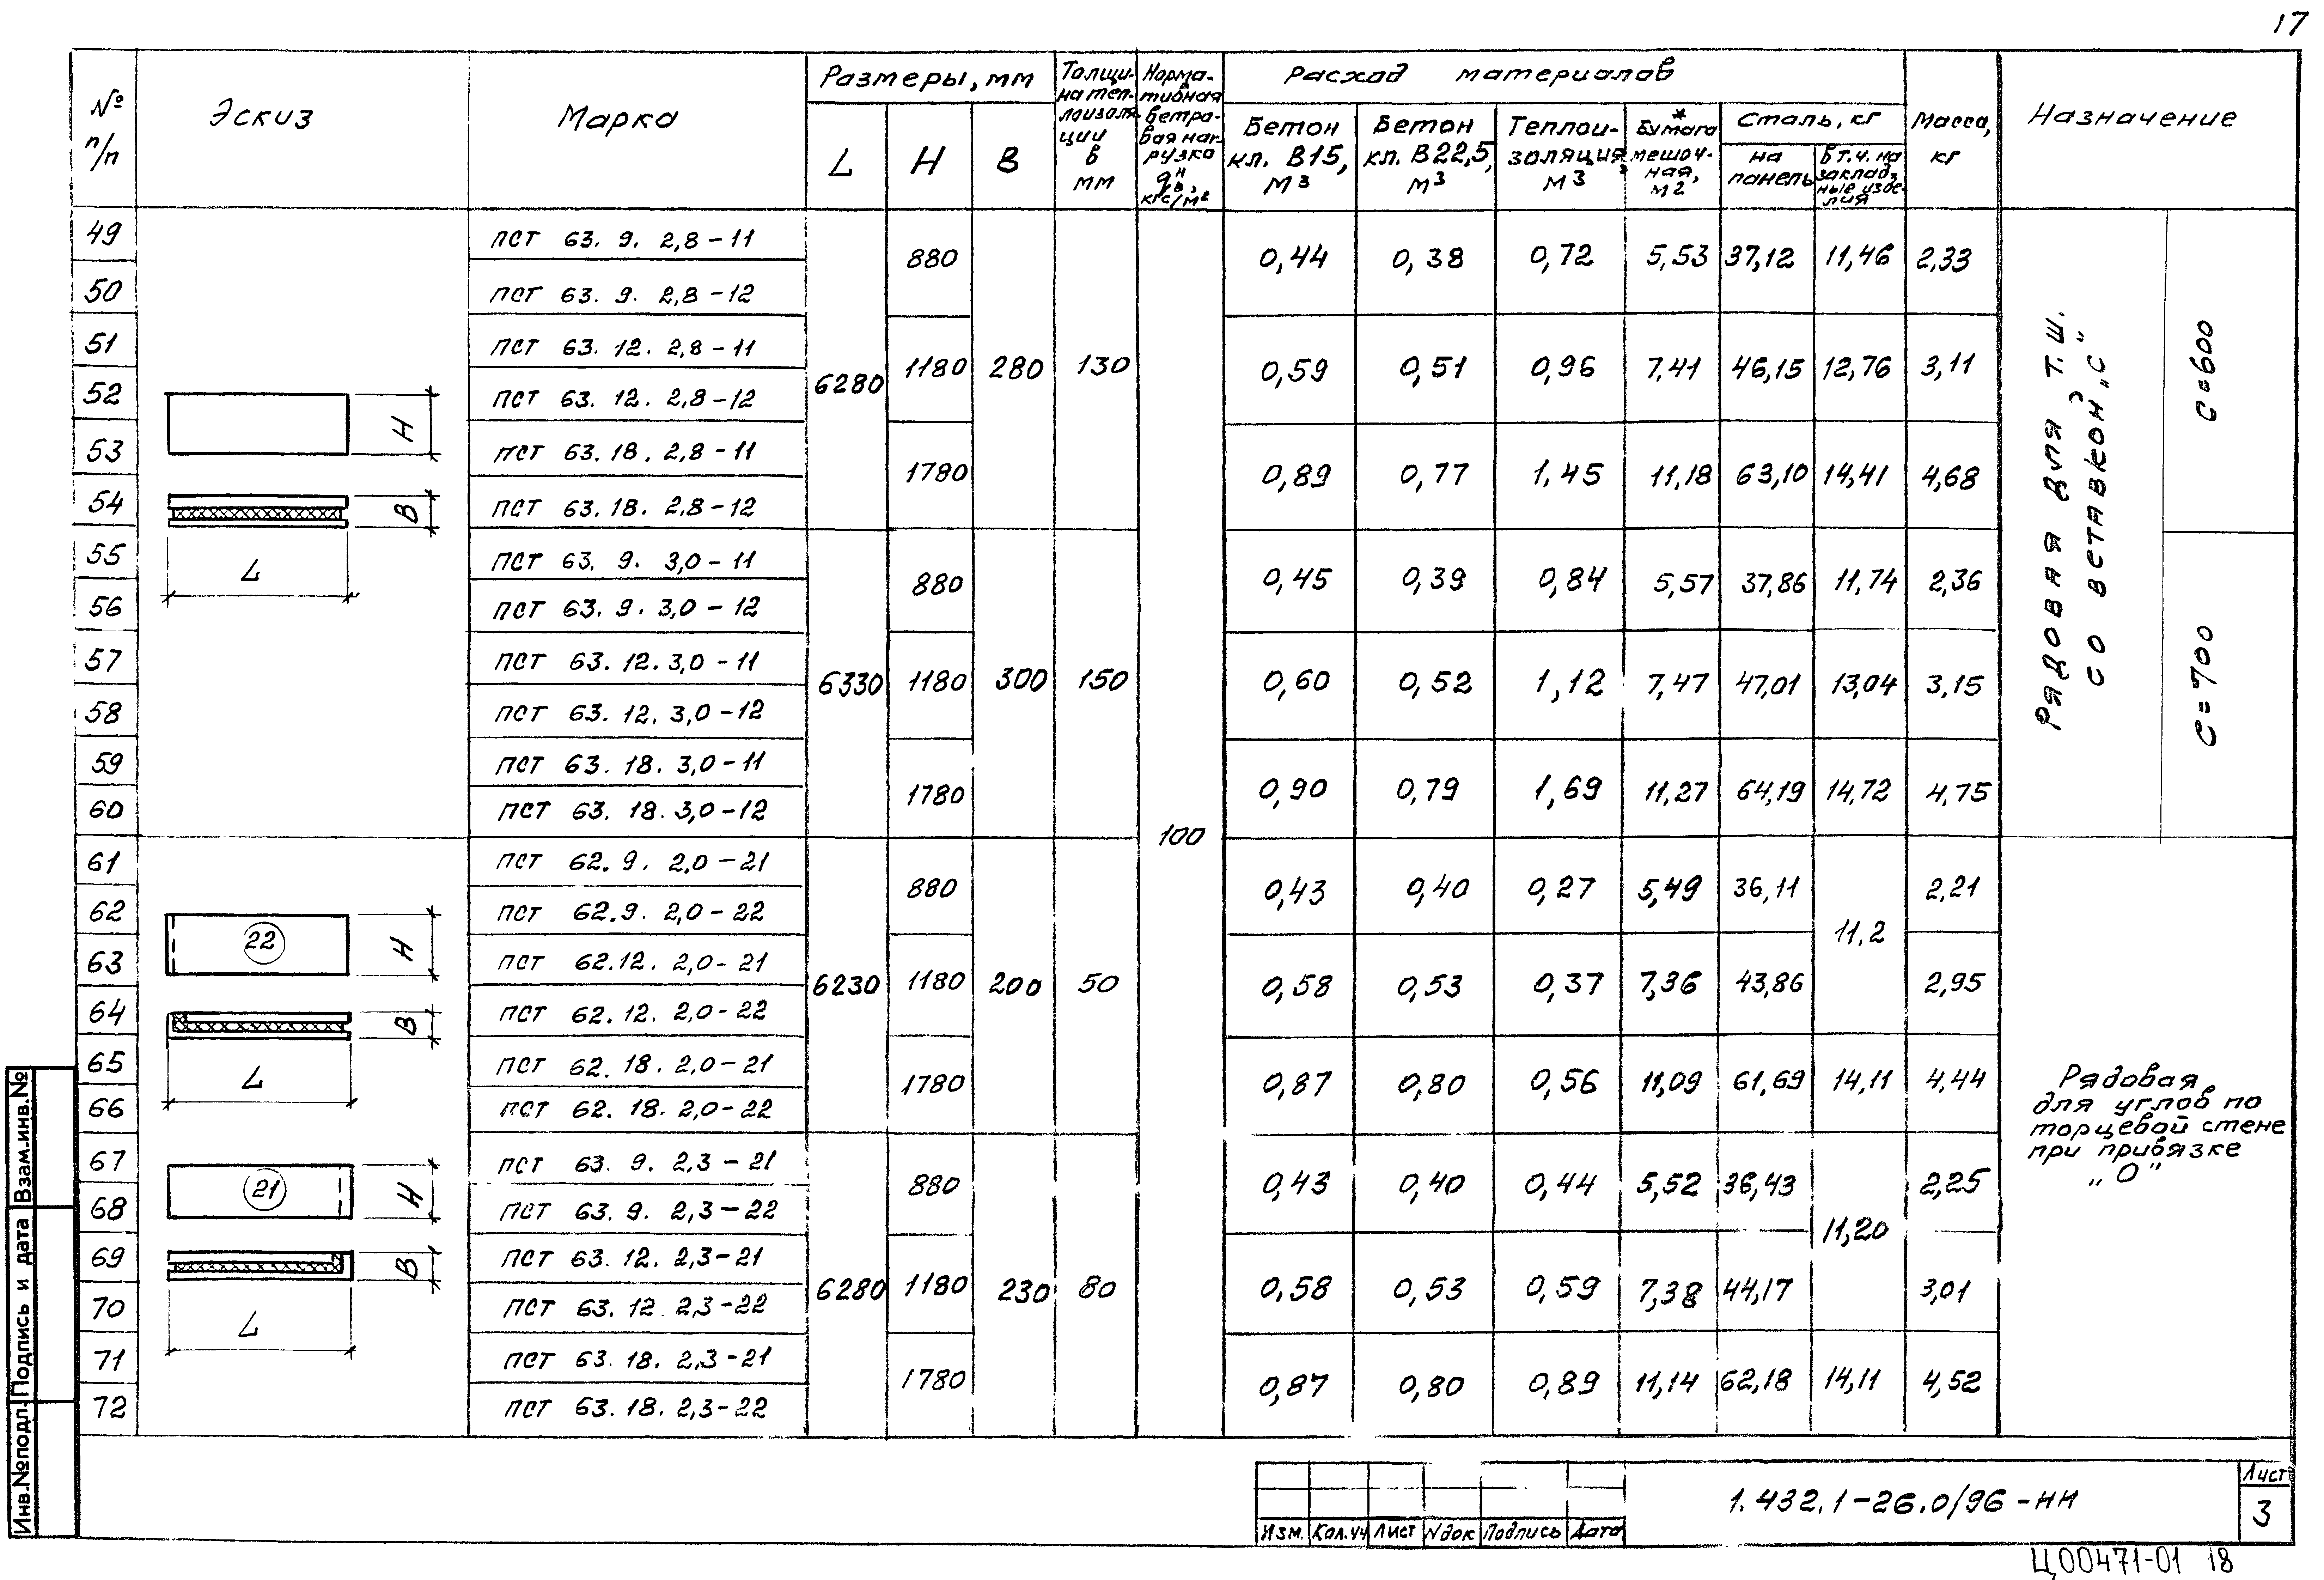 17
№ п/п
Эскиз
Марка
Размеры, мм
L
H
B
Толщи-
на теп-
лоизоля-
ции
в
мм
Норма-
тивная
ветро-
вая наг-
рузка
qᴴв,
кгс/м²
Расход материалов
Бетон
кл. В15,
м3
Бетон
кл. В22,5,
м3
Теплои-
золяция,
м3
*
Бумага
мешоч-
ная,
м2
Сталь, кг
на
панель
в т.ч. на
заклад-
ные изде-
лия
Масса,
кг
Назначение
49 пст 63. 9. 2,8-11
50 пст 63. 9. 2,8-12
880 0,44 0,38 0,72 5,53 37,12 11,46 2,33
51 пст 63. 12. 2,8-11
52 пст 63. 12. 2,8-12
6280 1180 280 130 0,59 0,51 0,96 7,41 46,15 12,76 3,11
53 пст 63. 18. 2,8-11
54 пст 63. 18. 2,8-12
1780 0,89 0,77 1,45 11,18 63,10 14,41 4,68
H
B
L
55 пст 63. 9. 3,0-11
56 пст 63. 9. 3,0-12
880 0,45 0,39 0,84 5,57 37,86 11,74 2,36
57 пст 63. 12. 3,0-11
58 пст 63. 12. 3,0-12
6330 1180 300 150 0,60 0,52 1,12 7,47 47,01 13,04 3,15
59 пст 63. 18. 3,0-11
60 пст 63. 18. 3,0-12
1780 0,90 0,79 1,69 11,27 64,19 14,72 4,75
Рядовая для т.ш.
со вставкой „С"
С=600
С=700
100
61 пст 62. 9. 2,0-21
62 пст 62. 9. 2,0-22
880 0,43 0,40 0,27 5,49 36,11 2,21
11,2
63 пст 62.12. 2,0-21
64 пст 62. 12. 2,0-22
6230 1180 200 50 0,58 0,53 0,37 7,36 43,86 2,95
65 пст 62. 18. 2,0-21
66 пст 62. 18. 2,0-22
1780 0,87 0,80 0,56 11,09 61,69 14,11 4,44
22
H
B
L
67 пст 63. 9. 2,3-21
68 пст 63. 9. 2,3-22
880 0,43 0,40 0,44 5,52 36,43 2,25
11,20
69 пст 63. 12. 2,3-21
70 пст 63. 12. 2,3-22
6280 1180 230 80 0,58 0,53 0,59 7,38 44,17 3,01
71 пст 63. 18. 2,3-21
72 пст 63. 18. 2,3-22
1780 0,87 0,80 0,89 11,14 62,18 14,11 4,52
21
H
B
L
Рядовая
для углов по
торцевой стене
при привязке
„О"
Инв.№подл. Подпись и дата Взам.инв.№
Изм. Кол.уч Лист №док Подпись Дата
1.432.1-26.0/96-НИ
Лист
3
Ц00471-01 18